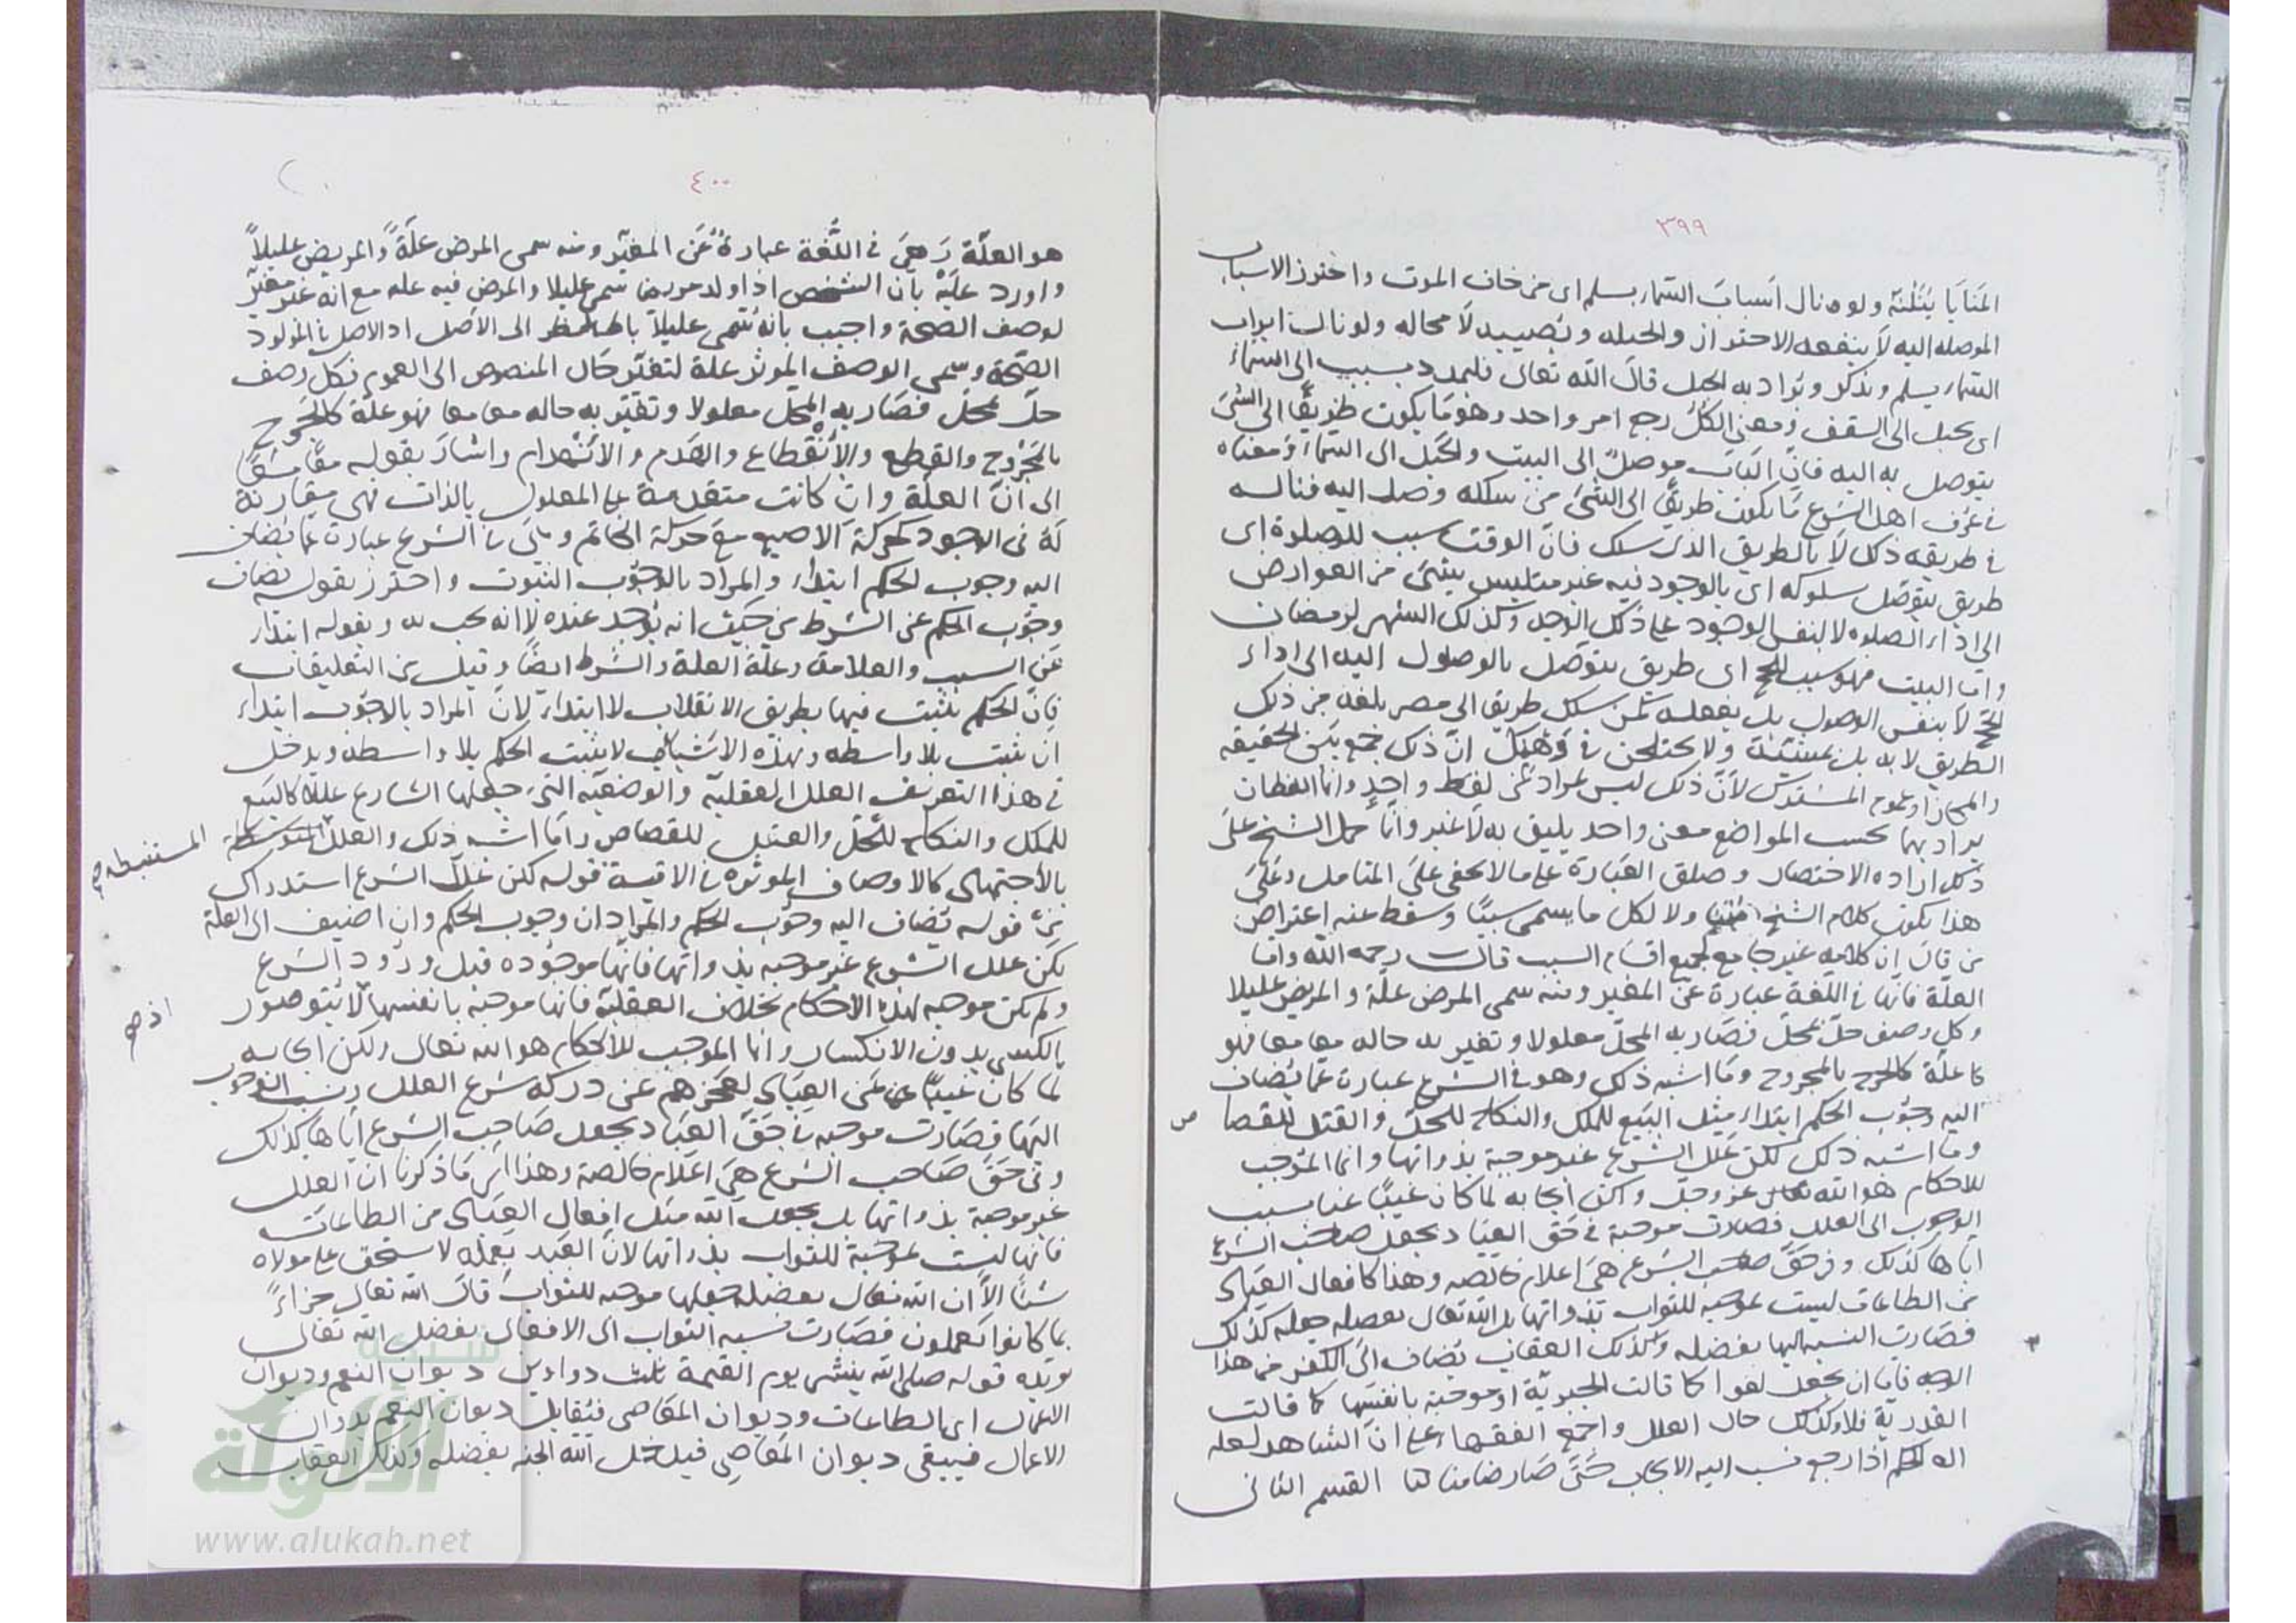 ٣٩٩
المنايا ينلنه ولو نال اسباب السماء بسلم اى من خاف الموت واحترز الاسباب
الموصله اليه لا ينفعه الاحتراز والحيله وتصيبه لا محاله ولو نال ابواب
السماء بسلم ويذكر ويراد به الحبل قال الله تعالى فليمدد بسبب الى السماء
اى بحبل الى السقف ومعنى الكل رجع امر واحد وهو ما يكون طريقا الى الشئ
يتوصل به اليه فان الباب موصل الى البيت والحبل الى السماء ومعناه
فى عرف اهل الشرع ما يكون طريقا الى الشئ من سلكه وصل اليه فناله
فى طريقه ذلك لا بالطريق الذى سلك فان الوقت سبب للصلوة اى
طريق يتوصل سلوكه اى بالوجود فيه غير متلبس بشئ من العوارض
الى اداء الصلوه لا لنفس الوجود على ذلك الوجه وكذلك الشهر لرمضان
واما البيت فهو سبب الحج اى طريق يتوصل بالوصول اليه الى اداء
الحج لا بنفس الوصول بل بفعله كمن سلك طريقا الى مصر بلغه من ذلك
الطريق لا به بل بمشيئة ولا يختلجن فى وهمك ان ذلك جمع بين الحقيقه
والمجاز او عموم المشترك لان ذلك ليس بمراد من لفظ واحد وانما اللفظان
يراد بهما بحسب المواضع معنى واحد يليق به لا غير وانما حمل الشيخ على
ذلك اراده الاختصار وضيق العبارة على ما لا يخفى على المتامل وعلى
هذا يكون كلام الشيخ ولا لكل ما يسمى سببا وسقط عنه اعتراض
من قال ان كلامه غير جامع لجميع اقسام السبب قال رحمه الله واما
العلة فانها فى اللغة عبارة عن المغير ومنه سمى المرض علة والمريض عليلا
وكل وصف حل بمحل فصار به المحل معلولا وتغير به حاله معا معا فهو
كا علة كالجرح بالمجروح وما اشبه ذلك وهو فى الشرع عبارة عما يضاف
اليه وجوب الحكم ابتداء مثل البيع للملك والنكاح للحل والقتل للقصا ص
وما اشبه ذلك لكن علل الشرع غير موجبة بذواتها وانما الموجب
للاحكام هو الله تعالى عز وجل ولكن ايجابه لما كان غيبا عنا نسب
الوجوب الى العلل فصارت موجبة فى حق العباد بجعل صاحب الشرع
اياها كذلك وفى حق صاحب الشرع هى اعلام خالصه وهذا كافعال العباد
من الطاعات ليست بموجبه للثواب بذواتها بل الله تعالى بفضله جعله كذلك
فصارت النسبه اليها بفضله وكذلك العقاب يضاف الى الكفر من هذا
الوجه فاما ان يجعل لغوا كما قالت الجبرية او موجبة بانفسها كما قالت
القدرية فلا وكذلك حال العلل واجمع الفقهاء على ان الشاهد لعله
اله الحكم اذا رجع نسب اليه الايجاب حتى صار ضامنا لنا القسم الثانى
٤٠٠
هو العلة وهى فى اللغة عبارة عن المغير ومنه سمى المرض علة والمريض عليلاً
واورد عليه بان الشخص اذا ولد مريضا سمى عليلا والمرض فيه عله مع انه غير مغير
لوصف الصحة واجيب بانه تسمى عليلا بالنظر الى الاصل اذ الاصل فى المولود
الصحة وسمى الوصف الموثر علة لتغير حال المنصوص الى العموم فكل وصف
حل بمحل فصار به المحل معلولا وتغير به حاله معا معا فهو علة كالجرح
بالمجروح والقطع والانقطاع والهدم والانهدام واشار بقوله معا معا
الى ان العلة وان كانت متقدمة على المعلول بالذات فهى مقارنة
له فى الوجود كحركة الاصبع مع حركة الخاتم وهى فى الشرع عبارة عما يضاف
اليه وجوب الحكم ابتداء والمراد بالوجوب الثبوت واحترز بقوله يضاف
وجوب الحكم عن الشرط من حيث انه يوجد عنده لا انه يجب به وبقوله ابتداء
عن السبب والعلامة وعلة العلة والشرط ايضا وقيل من التعليقات
فان الحكم يثبت فيها بطريق الانقلاب لا ابتداء لان المراد بالوجوب ابتداء
ان يثبت بلا واسطه وبهذه الاشياء لا يثبت الحكم بلا واسطه ويدخل
فى هذا التعريف العلل العقلية والوضعية التى جعلها الشارع عللا كالبيع
للملك والنكاح للحل والقتل للقصاص واما اشبه ذلك والعلل المستنبطه صح
بالاجتهاد كالاوصاف الموثره فى الاقيسة قوله لكن علل الشرع استدراك
من قوله يضاف اليه وجوب الحكم والمراد ان وجوب الحكم وان اضيف الى العلة
لكن علل الشرع غير موجبه بذواتها فانها موجوده قبل ورود الشرع
ولم تكن موجبه لهذه الاحكام بخلاف العقلية فانها موجبة بانفسها لا يتوصور اذ صح
بالكسر بدون الانكسار وانما الموجب للاحكام هو الله تعالى ولكن ايجابه
لما كان غيبا عن العباد لعجزهم عن دركه شرع العلل ونسب الوجوب
اليها فصارت موجبه فى حق العباد بجعل صاحب الشرع اياها كذلك
وفى حق صاحب الشرع هى اعلام خالصة وهذا اى ما ذكرنا ان العلل
غير موجبة بذواتها بل بجعل الله مثل افعال العباد من الطاعات
فانها ليست بموجبة للثواب بذواتها لان العبد بعمله لا يستحق على مولاه
شئا الا ان الله تعالى بفضله جعلها موجبه للثواب قال الله تعالى جزاءً
بما كانوا يعملون فصارت نسبه الثواب الى الافعال بفضل الله تعالى
يويده قوله صلى الله ينشر يوم القيمة ثلث دواوين ديوان النعم وديوان
الاعمال اى الطاعات وديوان المعاصى فيقابل ديوان النعم بديوان
الاعمال فيبقى ديوان المعاصى فيدخل الله الجنه بفضله وكذلك العقاب
شبكة
الألوكة
www.alukah.net